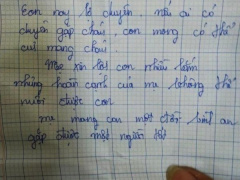 Con nay là chuyển. nếu ai có
chuyện gặp cháu, con mong có thể
cưu mang cháu.
Mẹ xin lỗi con nhiều lắm
những hoàn cảnh của mẹ không thể
nuôi được con
mẹ mong sau một đời bình an
gặp được một người tốt